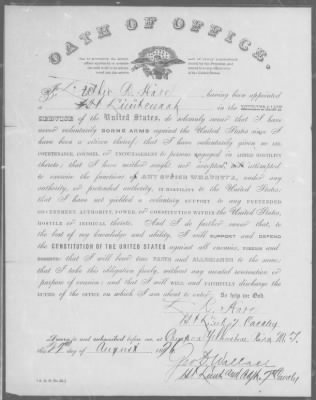 OATH OF OFFICE.
I, Luther R. Hare
having been appointed
1st Lieutenant in the MILITARY
SERVICE of the United States, do solemnly swear that I have
never voluntarily BORNE ARMS against the United States since I
have been a citizen thereof; that I have voluntarily given no AID,
COUNTENANCE, COUNSEL, OR ENCOURAGEMENT to PERSONS ENGAGED IN ARMED HOSTILITY
thereto; that I have neither sought nor accepted, nor attempted
to exercise the functions of ANY OFFICE WHATEVER, under any
authority, or pretended authority, IN HOSTILITY to the United States;
that I have not yielded a voluntary SUPPORT to ANY PRETENDED
GOVERNMENT, AUTHORITY, POWER, OR CONSTITUTION WITHIN the UNITED STATES,
HOSTILE OR INIMICAL thereto. And I do further swear that, to
the best of my knowledge and ability, I will SUPPORT and DEFEND
the CONSTITUTION OF THE UNITED STATES against all enemies, FOREIGN and
DOMESTIC; that I will bear TRUE FAITH and ALLEGIANCE to the same;
that I take this obligation freely, without any mental reservation or
purpose of evasion; and that I will WELL and FAITHFULLY DISCHARGE the
DUTIES OF THE OFFICE ON WHICH I am about to enter: So help me God.
L. R. Hare
1st Lieut 7 Cavalry
Sworn to and subscribed before me, at Camp on Yellowstone M. T.
this 27th day of August 1876
Geo D Wallace
1st Lieut and Adjt 7th Cavalry